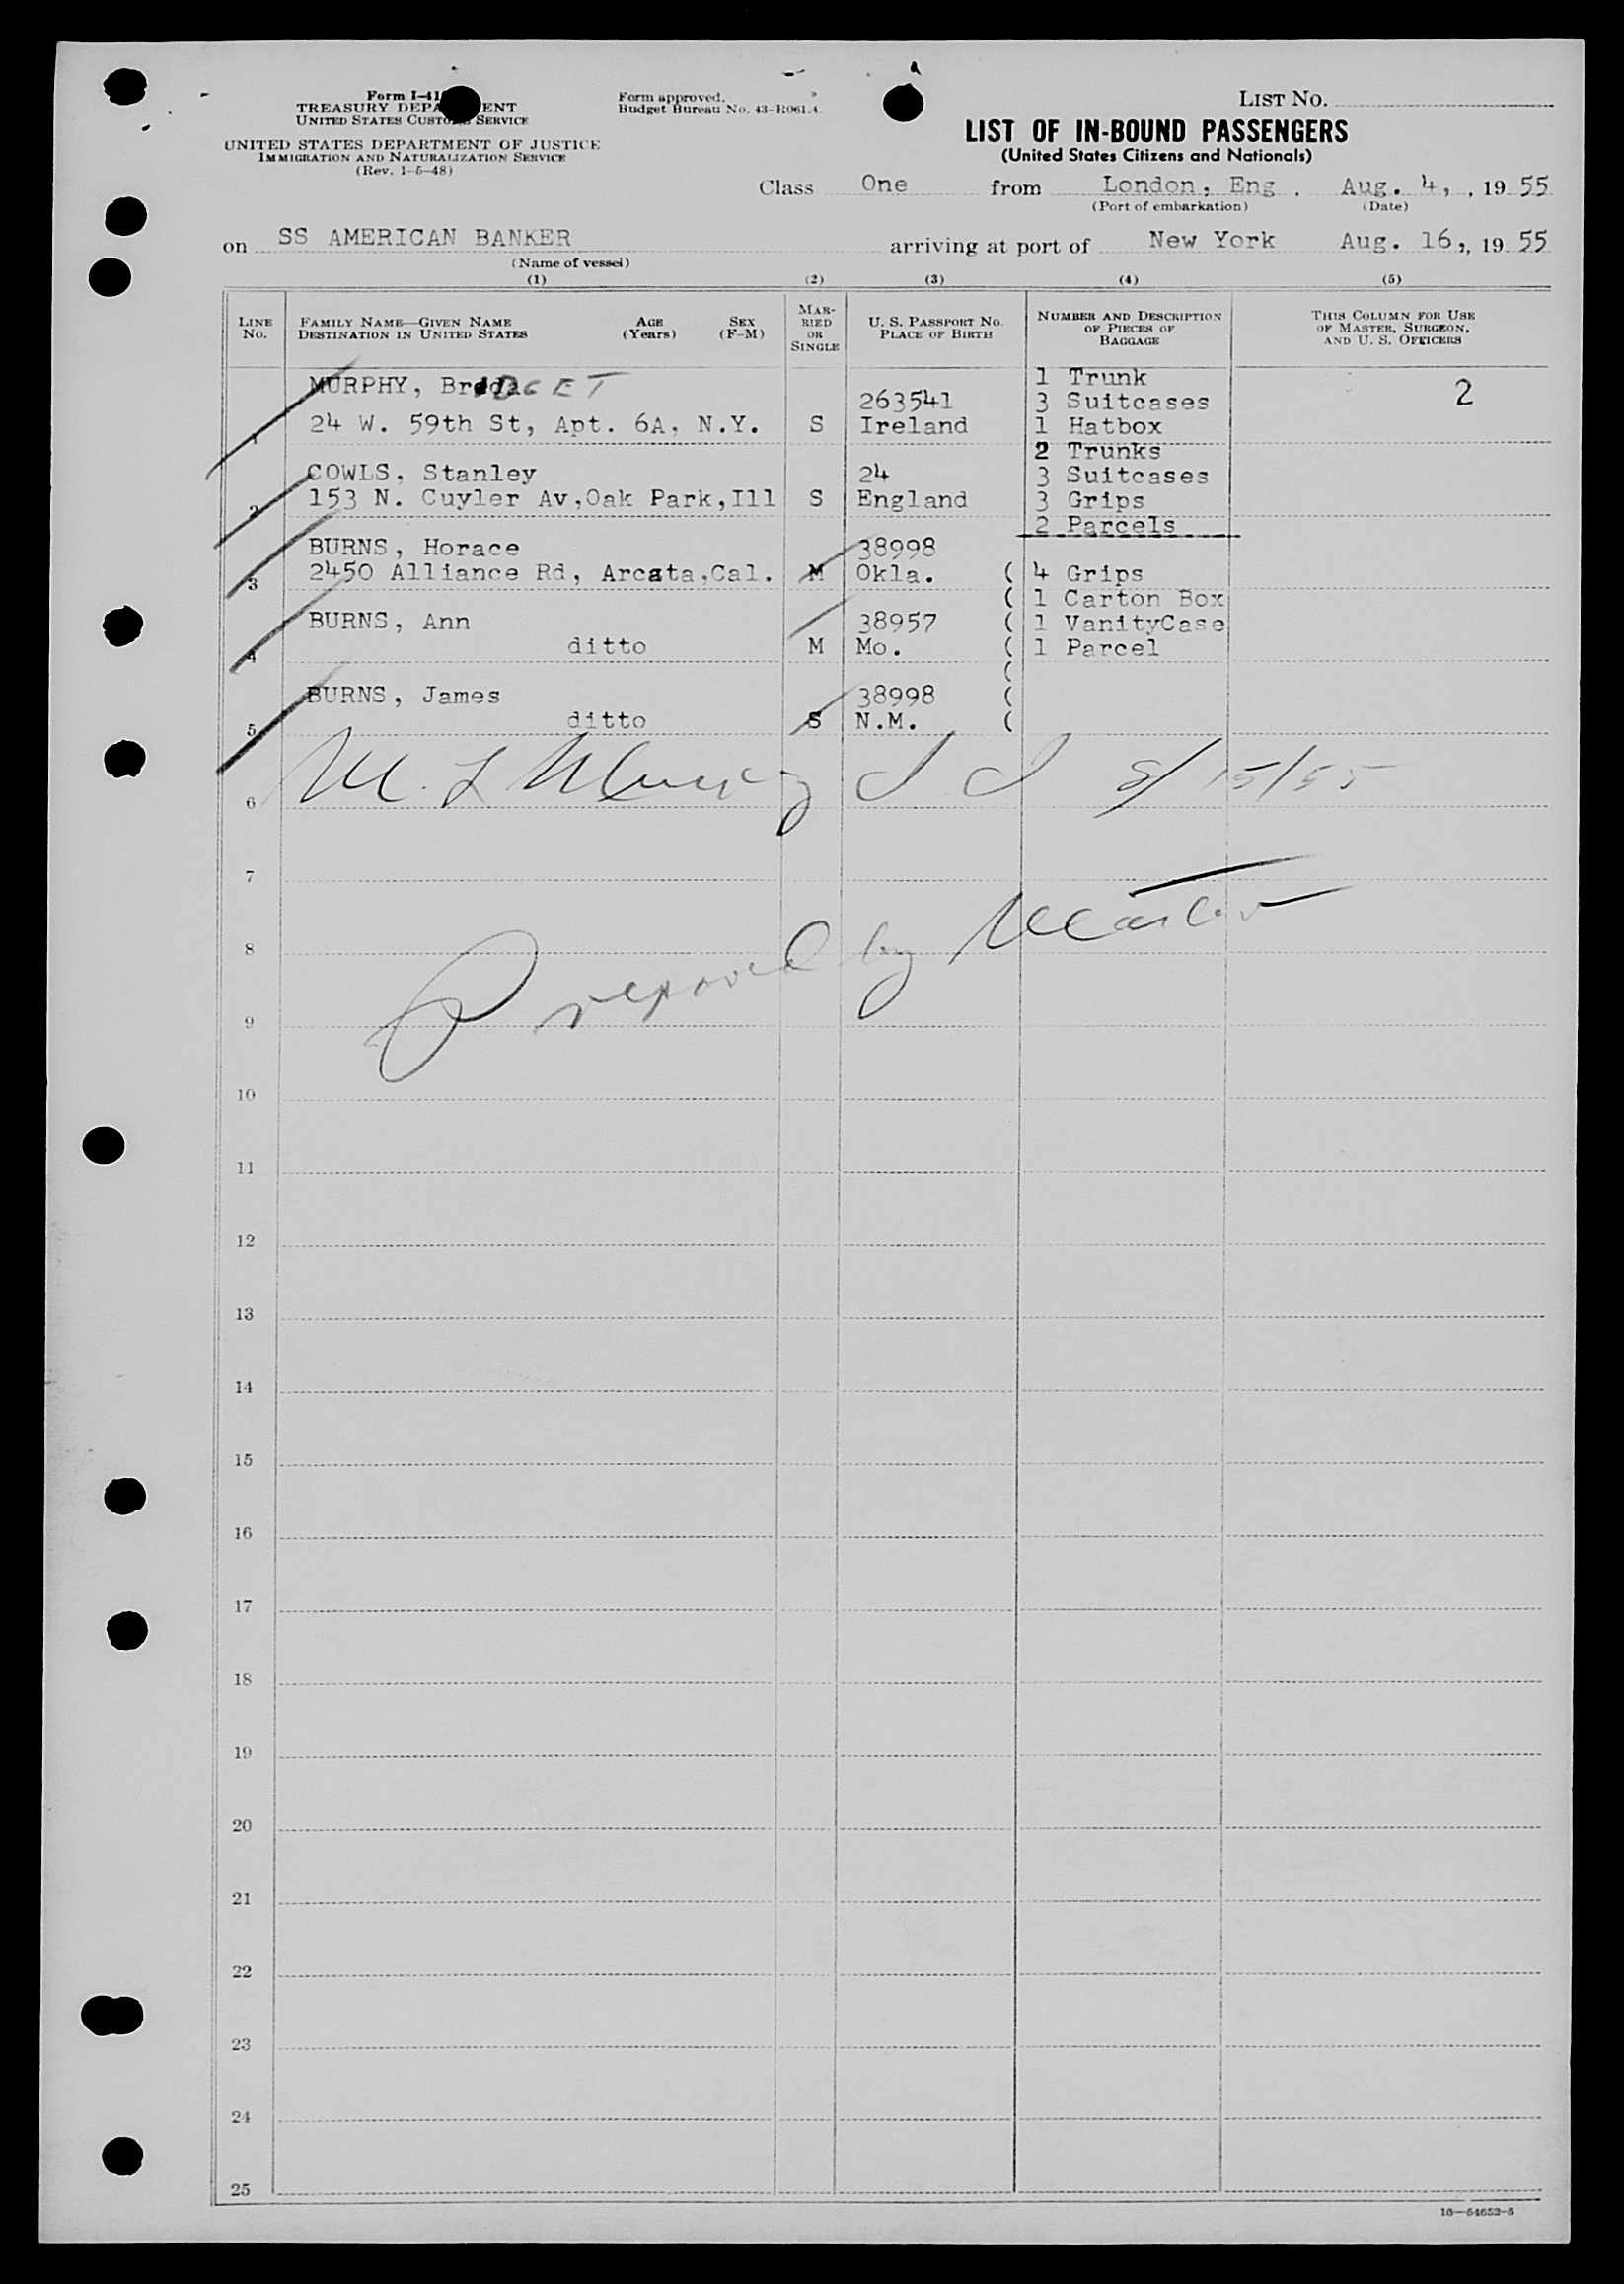 Form I-41
TREASURY DEPA ENT
UNITED STATES CUSTO S SERVICE
UNITED STATES DEPARTMENT OF JUSTICE
IMMIGRATION AND NATURALIZATION SERVICE
(Rev. 1-5-48)
Form approved.
Budget Bureau No. 43-R061.4.
LIST No.
LIST OF IN-BOUND PASSENGERS
(United States Citizens and Nationals)
Class One from London, Eng. Aug. 4, , 19 55
(Port of embarkation) (Date)
on SS AMERICAN BANKER arriving at port of New York Aug. 16,, 19 55
(Name of vessel)
(1) (2) (3) (4) (5)
LINE No. FAMILY NAME—GIVEN NAME DESTINATION IN UNITED STATES AGE (Years) SEX (F-M) MARRIED OR SINGLE U. S. PASSPORT No. PLACE OF BIRTH NUMBER AND DESCRIPTION OF PIECES OF BAGGAGE THIS COLUMN FOR USE OF MASTER, SURGEON, AND U. S. OFFICERS
1 Trunk
MURPHY, BrIDGET 263541 3 Suitcases 2
1 24 W. 59th St, Apt. 6A, N.Y. S Ireland 1 Hatbox
2 Trunks
COWLS, Stanley 24 3 Suitcases
2 153 N. Cuyler Av,Oak Park,Ill S England 3 Grips
2 Parcels
BURNS, Horace 38998
3 2450 Alliance Rd, Arcata,Cal. M Okla. ( 4 Grips
( 1 Carton Box
BURNS, Ann 38957 ( 1 VanityCase
4 ditto M Mo. ( 1 Parcel
(
BURNS, James 38998 (
5 ditto S N.M. (
6 M. L 8/15/55
7
8 by
9
10
11
12
13
14
15
16
17
18
19
20
21
22
23
24
25
16—54652-5